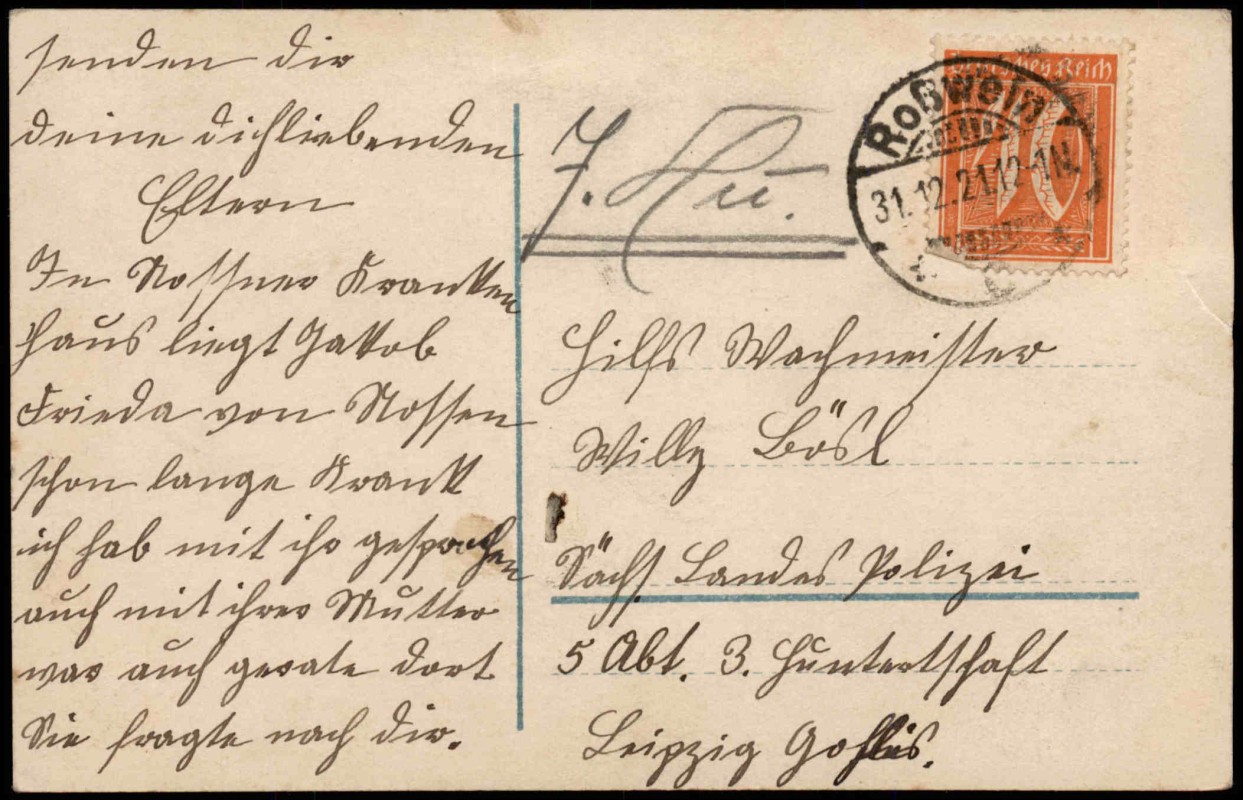 senden dir
deine dichliebenden
Eltern
In Nossner Kranken
haus liegt Jakob
Frieda von Nossen
schon lange Krank
ich hab mit ihr gesprochen
auch mit ihrer Mutter
war auch gerate dort
Sie fragte nach dir.
Deutsches Reich
Roßwein
31.12.21.12-1N.
Hilfs Wachmeister
Willy Bösl
Sächs. Landes Polizei
5 Abt. 3. Huntertschaft
Leipzig Gohlis.